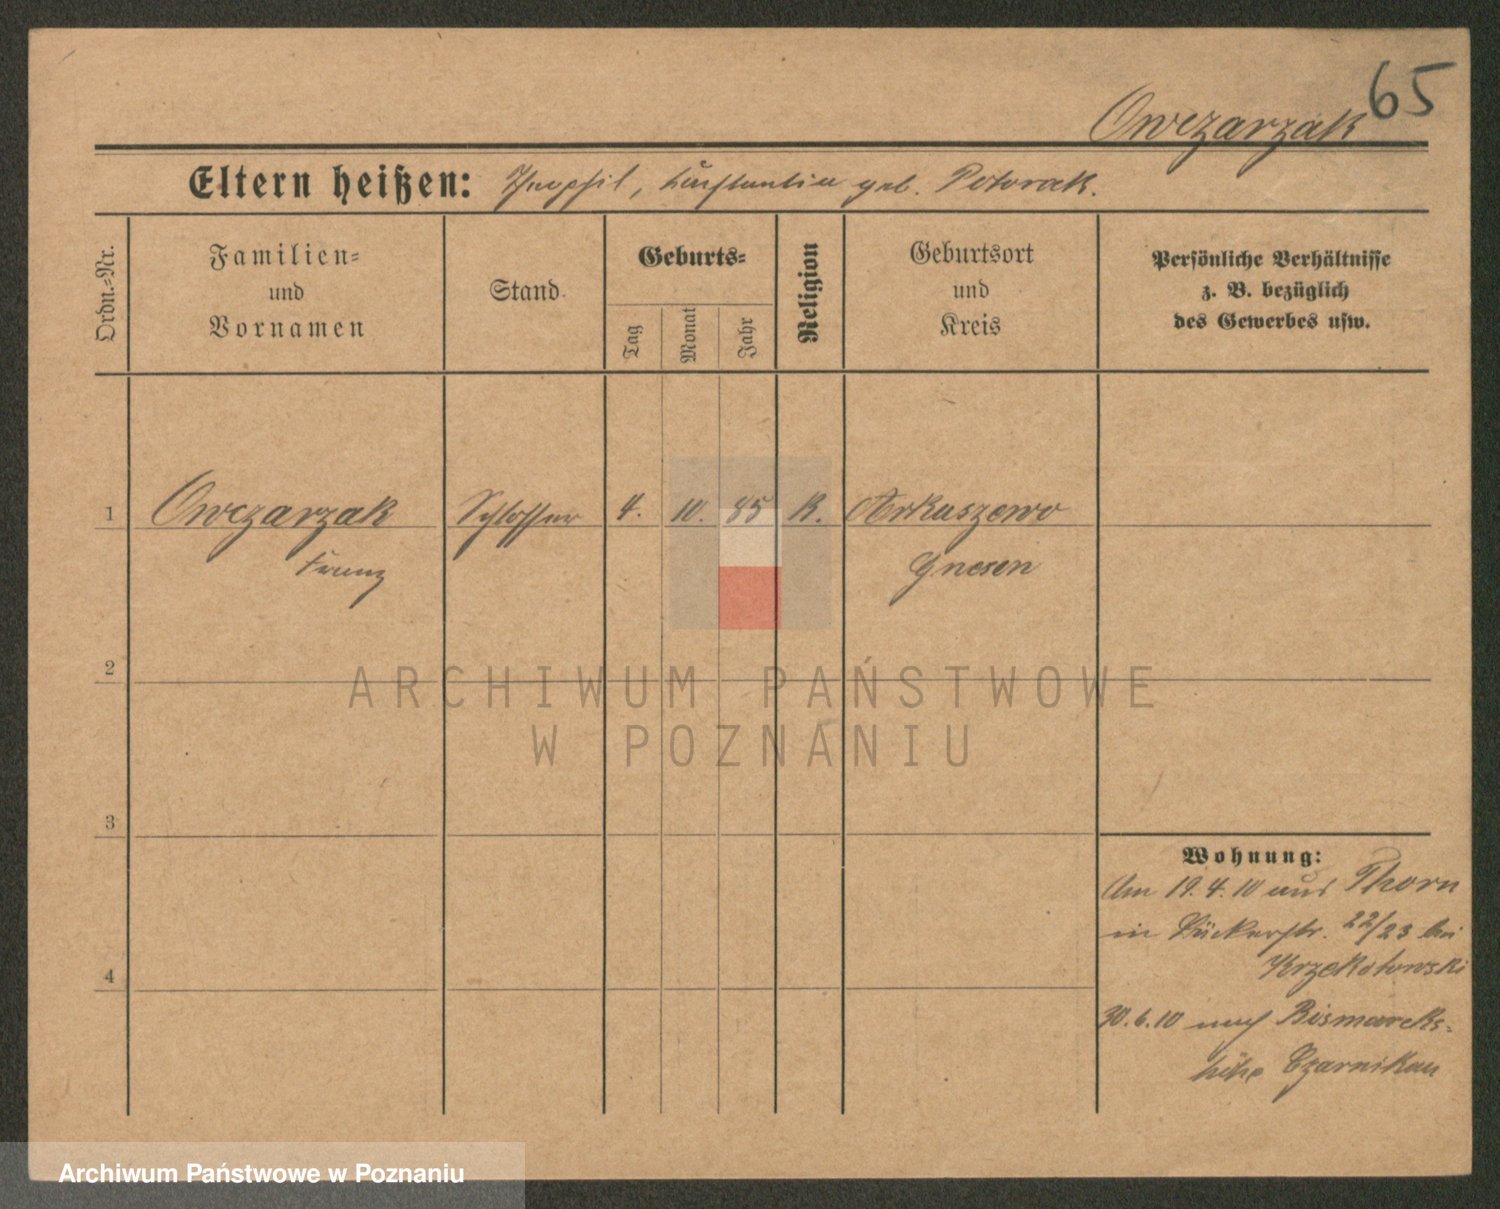 65
Owczarzak
Eltern heißen: Theophil, Konstantia geb. Potorack.
Ordn.-Nr.
Familien-
und
Vornamen
Stand
Geburts-
Tag
Monat
Jahr
Religion
Geburtsort
und
Kreis
Persönliche Verhältnisse
z. B. bezüglich
des Gewerbes usw.
1 Owczarzak Schlosser 4. 10. 85 K. Arkuszewo
Franz Gnesen
2
ARCHIWUM PAŃSTWOWE
W POZNANIU
3
Wohnung:
Am 19.4.10 aus Thorn
in 22/23 bei
Krzekotowski
4
30.6.10 nach Bismarcks-
höhe Czarnikau
Archiwum Państwowe w Poznaniu